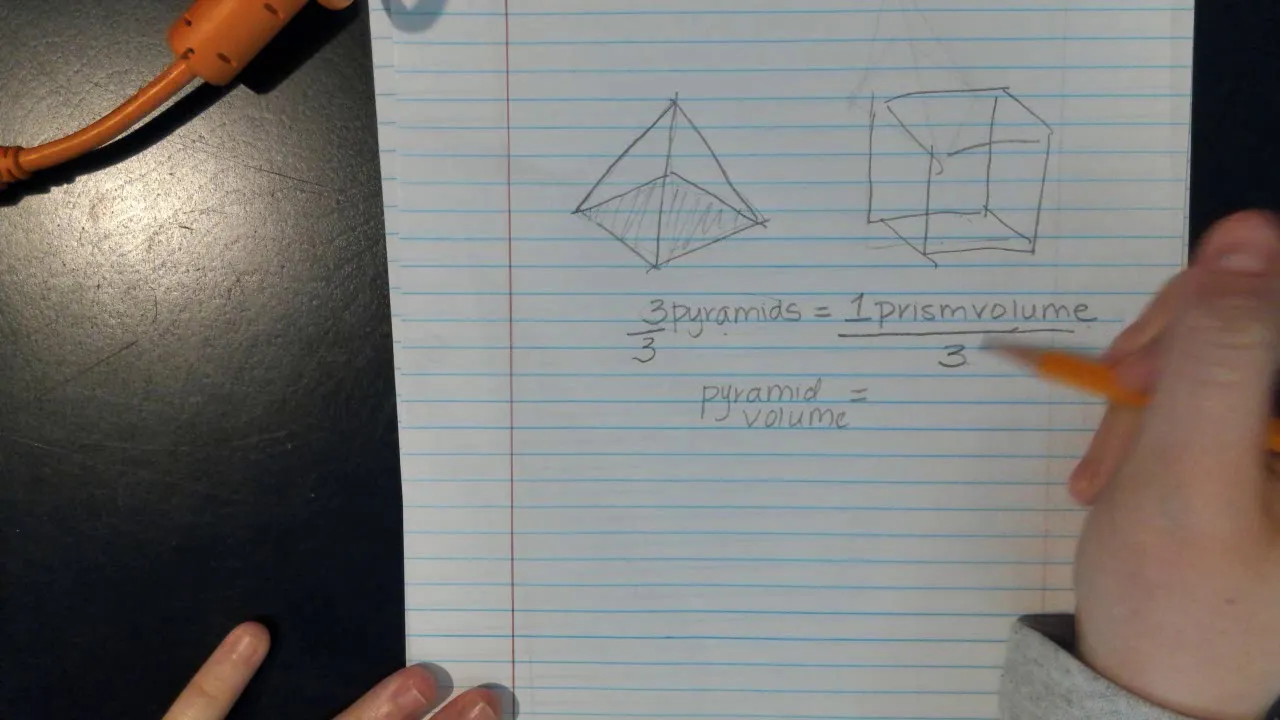 3 pyramids = 1 prism volume
3 3
pyramid =
volume